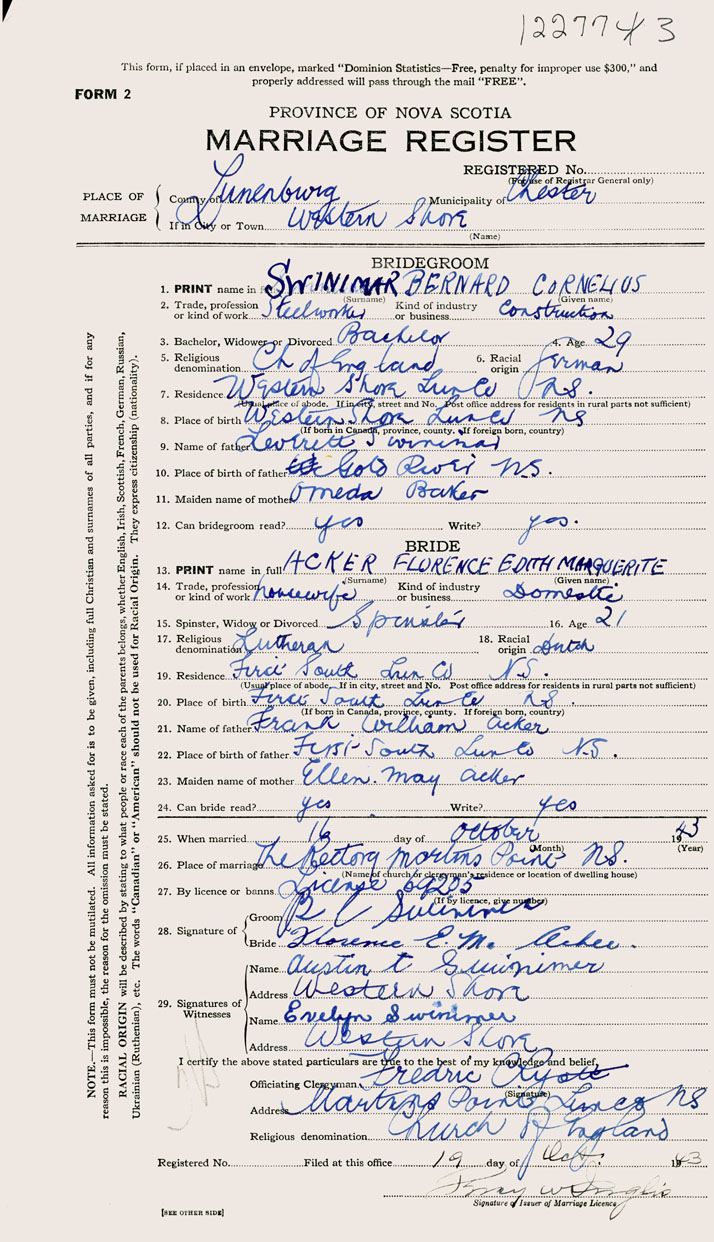 122774 3
This form, if placed in an envelope, marked "Dominion Statistics—Free, penalty for improper use $300," and
properly addressed will pass through the mail "FREE".
FORM 2
PROVINCE OF NOVA SCOTIA
MARRIAGE REGISTER
REGISTERED No.
(For use of Registrar General only)
PLACE OF MARRIAGE
County of Lunenburg Municipality of Chester
If in City or Town Western Shore
(Name)
BRIDEGROOM
1. PRINT name in SWINIMAR BERNARD CORNELIUS
(Surname) (Given name)
2. Trade, profession or kind of work Steelworker Kind of industry or business Construction
3. Bachelor, Widower or Divorced Bachelor 4. Age 29
5. Religious denomination Ch of England 6. Racial origin German
7. Residence Western Shore Lun Co N.S.
(Usual place of abode. If in city, street and No. Post office address for residents in rural parts not sufficient)
8. Place of birth Western Shore Lun Co NS
(If born in Canada, province, county. If foreign born, country)
9. Name of father Leverett Swinimar
10. Place of birth of father Gold River N.S.
11. Maiden name of mother Omeda Baker
12. Can bridegroom read? yes Write? yes.
BRIDE
13. PRINT name in full ACKER FLORENCE EDITH MARGUERITE
(Surname) (Given name)
14. Trade, profession or kind of work housewife Kind of industry or business Domestic
15. Spinster, Widow or Divorced Spinster 16. Age 21
17. Religious denomination Lutheran 18. Racial origin Dutch
19. Residence First South Lun Co N.S.
(Usual place of abode. If in city, street and No. Post office address for residents in rural parts not sufficient)
20. Place of birth First South Lun Co N.S.
(If born in Canada, province, county. If foreign born, country)
21. Name of father Frank William Acker
22. Place of birth of father First South Lun Co N.S.
23. Maiden name of mother Ellen May Acker
24. Can bride read? yes Write? yes
25. When married 16 day of October 1943
(Month) (Year)
26. Place of marriage The Rectory Martins Point N.S.
(Name of church or clergyman's residence or location of dwelling house)
27. By licence or banns License 69205
(If by licence, give number)
28. Signature of
Groom B C Swinimer
Bride Florence E. M. Acker.
29. Signatures of Witnesses
Name Austin t Swinimer
Address Western Shore
Name Evelyn Swinimer
Address Western Shore
I certify the above stated particulars are true to the best of my knowledge and belief,
Officiating Clergyman Fredric
(Signature)
Address Martins Point Lun Co NS
Religious denomination Church of England
Registered No. Filed at this office 19 day of Oct. 1943
Signature of Issuer of Marriage Licence
[SEE OTHER SIDE]
NOTE.—This form must not be mutilated. All information asked for is to be given, including full Christian and surnames of all parties, and if for any
reason this is impossible, the reason for the omission must be stated.
RACIAL ORIGIN will be described by stating to what people or race each of the parents belongs, whether English, Irish, Scottish, French, German, Russian,
Ukrainian (Ruthenian), etc. The words "Canadian" or "American" should not be used for Racial Origin. They express citizenship (nationality).